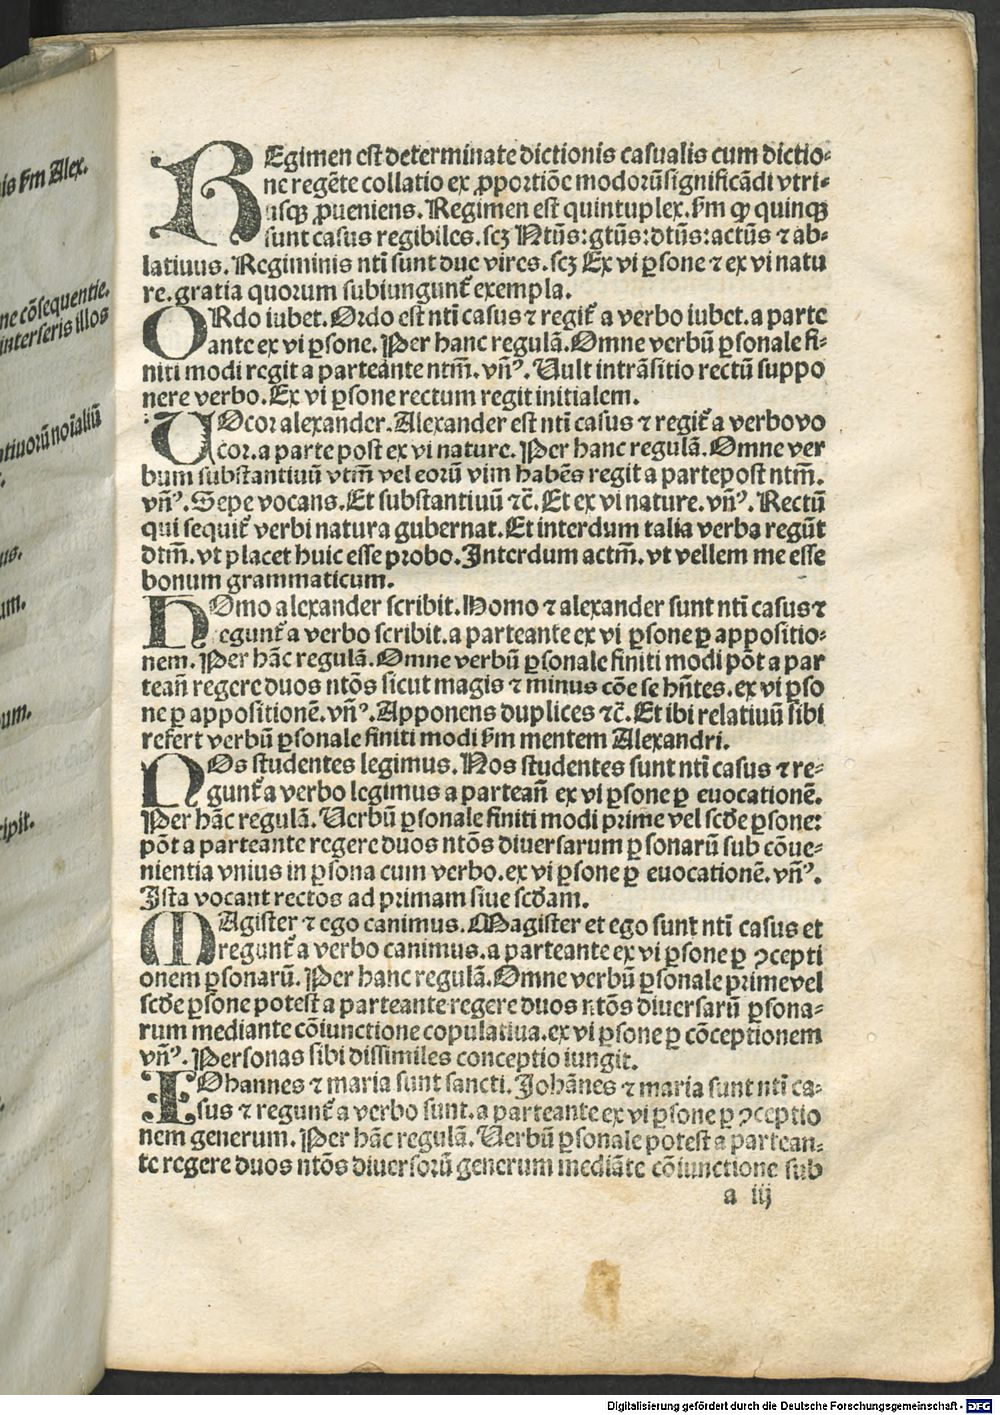 is ẜm Alex.
ne cõsequentie.
interseris illos
ntiuorũ noĩaliũ
us.
um.
oum.
cipit.
REgimen est determinate dictionis casualis cum dictio-
ne regẽte collatio ex ꝓportiõe modorũ significãdi vtri-
usqꝫ ꝓueniens. Regimen est quintuplex. ẜm ꝙ quinqꝫ
sunt casus regibiles. scꝫ Ntũs: gtũs: dtũs: actũs ⁊ ab-
latiuus. Regiminis nti͂ sunt due vires. scꝫ Ex vi ꝑsone ⁊ ex vi natu
re. gratia quorum subiungunt᷑ exempla.
ORdo iubet. Ordo est nti͂ casus ⁊ regit᷑ a verbo iubet. a parte
ante ex vi ꝑsone. Per hanc regulã. Omne verbũ ꝑsonale fi-
niti modi regit a parteante ntm̃. vñ⁹. Uult intrãsitio rectũ suppo
nere verbo. Ex vi ꝑsone rectum regit initialem.
UOcor alexander. Alexander est nti͂ casus ⁊ regit᷑ a verbo vo
cor. a parte post ex vi nature. Per hanc regulã. Omne ver
bum substantiuũ vtm̃ vel eorũ vim habẽs regit a partepost ntm̃.
vñ⁹. Sepe vocans. Et substantiuũ ⁊c̃. Et ex vi nature. vñ⁹. Rectũ
qui sequit᷑ verbi natura gubernat. Et interdum talia verba regũt
dtm̃. vt placet huic esse probo. Interdum actm̃. vt vellem me esse
bonum grammaticum.
HOmo alexander scribit. Homo ⁊ alexander sunt nti͂ casus ⁊
regunt᷑ a verbo scribit. a parteante ex vi ꝑsone ꝑ appositio-
nem. Per hãc regulã. Omne verbũ ꝑsonale finiti modi põt a par
teañ regere duos ntõs sicut magis ⁊ minus cõe se hñtes. ex vi ꝑso
ne ꝑ appositionẽ. vñ⁹. Apponens duplices ⁊c̃. Et ibi relatiuũ sibi
refert verbũ ꝑsonale finiti modi ẜm mentem Alexandri.
NOs studentes legimus. Nos studentes sunt nti͂ casus ⁊ re-
gunt᷑ a verbo legimus a parteañ ex vi ꝑsone ꝑ euocationẽ.
Per hãc regulã. Uerbũ ꝑsonale finiti modi prime vel scd̃e ꝑsone:
põt a parteante regere duos ntõs diuersarum ꝑsonarũ sub cõue-
nientia vnius in ꝑsona cum verbo. ex vi ꝑsone ꝑ euocationẽ. vñ⁹.
Ista vocant rectos ad primam siue scd̃am.
MAgister ⁊ ego canimus. Magister et ego sunt nti͂ casus et
regunt᷑ a verbo canimus. a parteante ex vi ꝑsone ꝑ ↄcepti
onem ꝑsonarũ. Per hanc regulã. Omne verbũ ꝑsonale prime vel
scd̃e ꝑsone potest a parteante regere duos ntõs diuersarũ ꝑsona-
rum mediante cõiunctione copulatiua. ex vi ꝑsone ꝑ cõceptionem
vñ⁹. Personas sibi dissimiles conceptio iungit.
IOhannes ⁊ maria sunt sancti. Johãnes ⁊ maria sunt nti͂ ca-
sus ⁊ regunt᷑ a verbo sunt. a parteante ex vi ꝑsone ꝑ ↄceptio
nem generum. Per hãc regulã. Uerbũ ꝑsonale potest a partean-
te regere duos ntõs diuersorũ generum mediãte cõiunctione sub
a iij
Digitalisierung gefördert durch die Deutsche Forschungsgemeinschaft - DFG